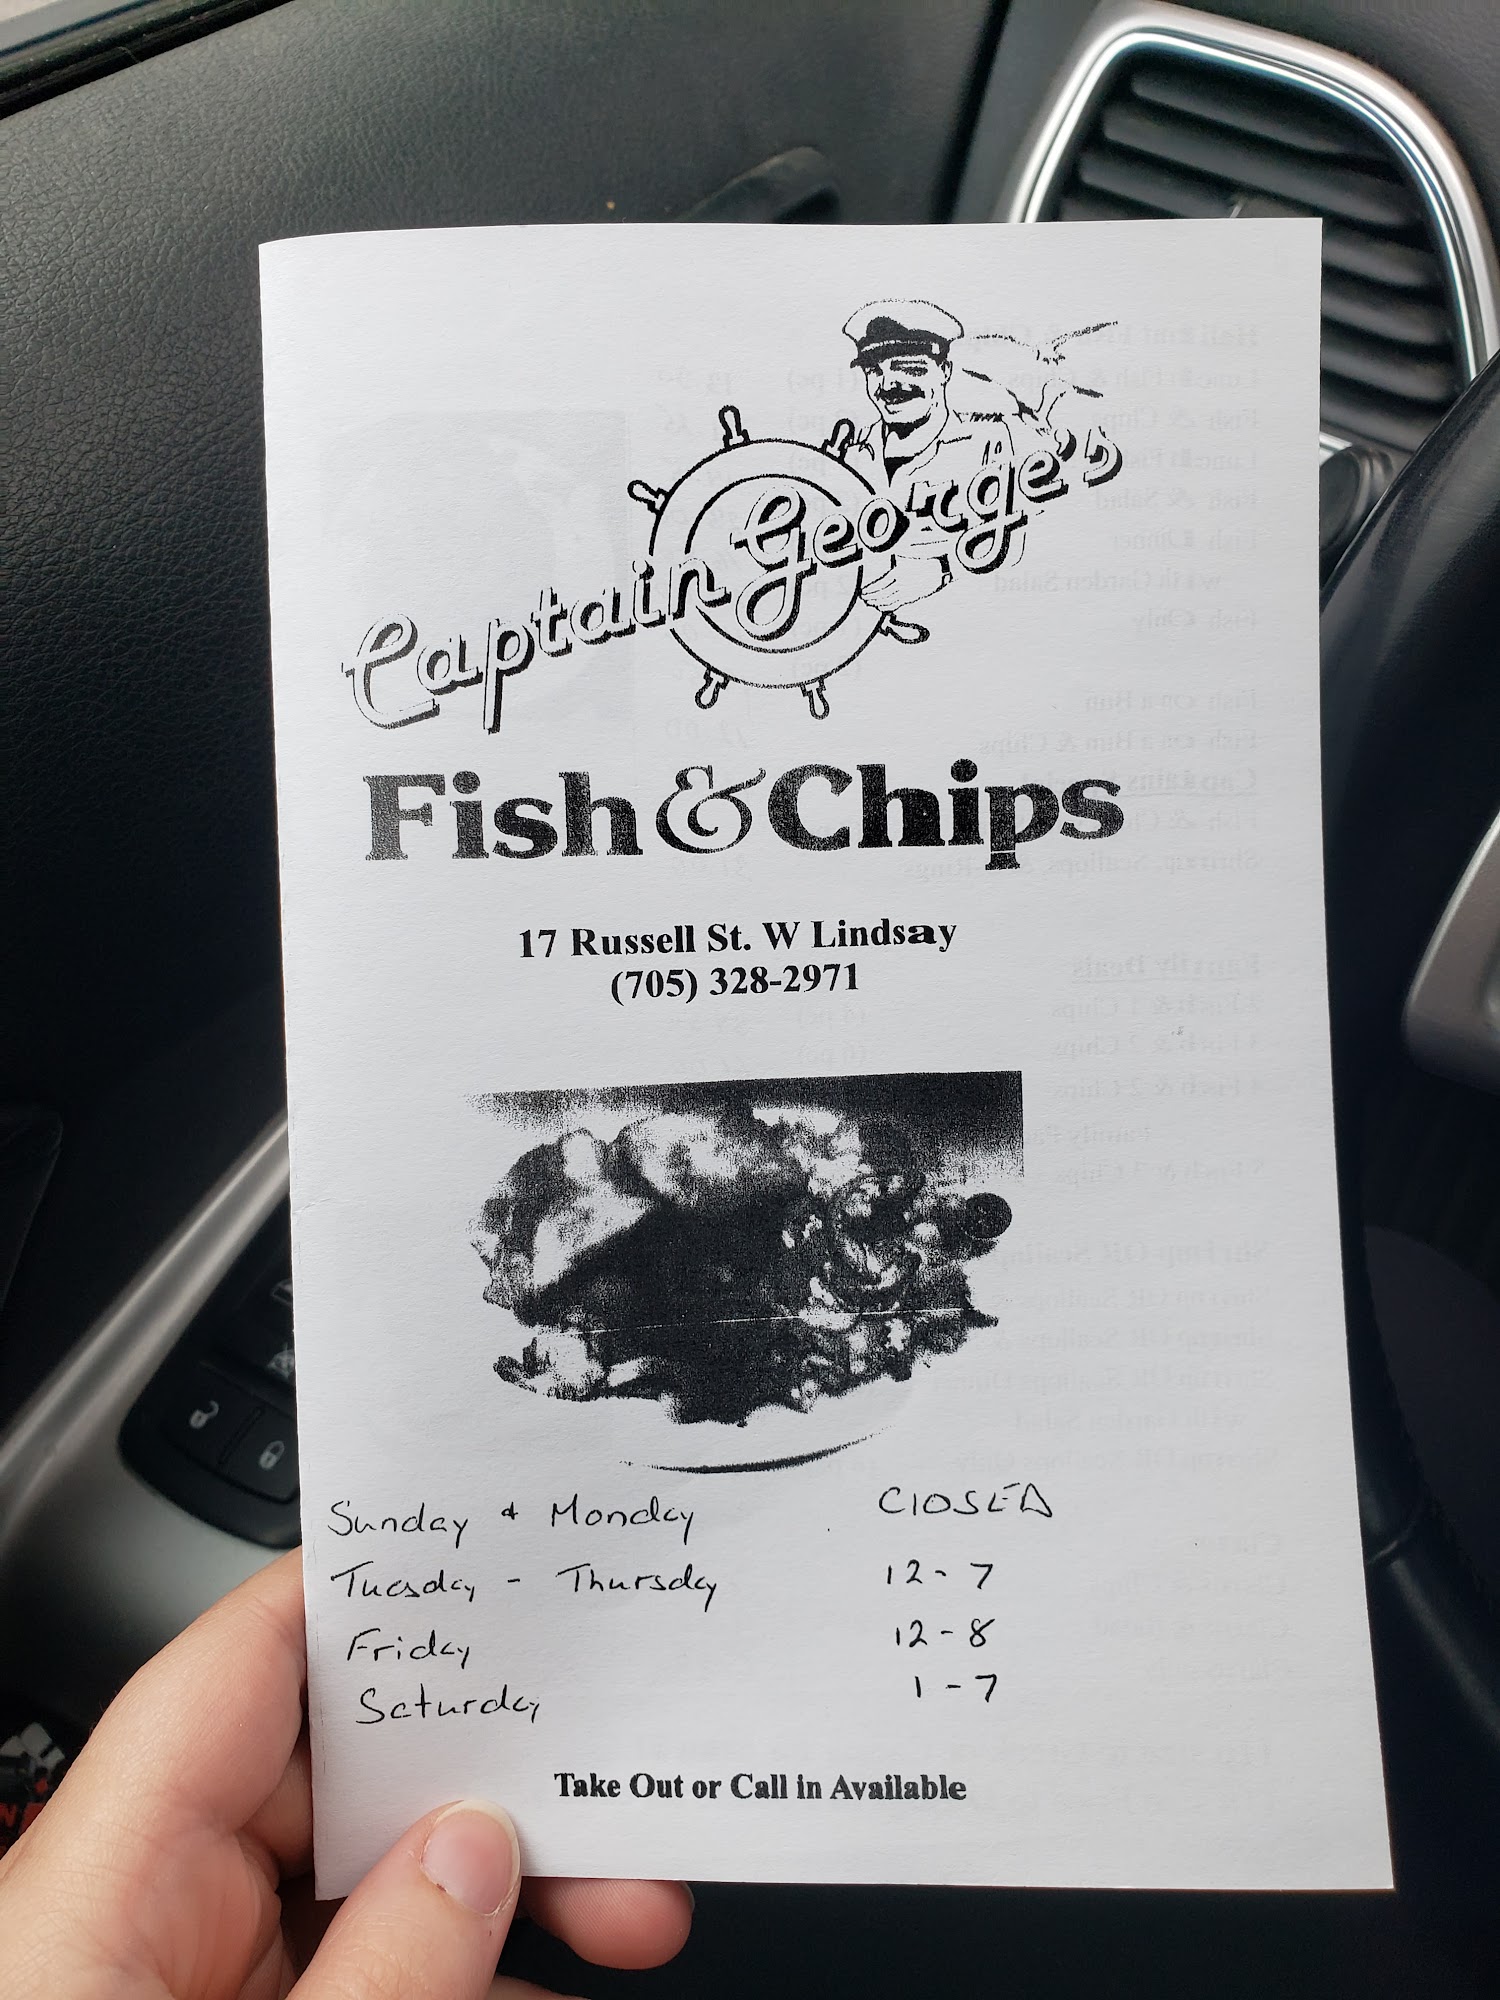 Captain George's
Fish & Chips
17 Russell St. W Lindsay
(705) 328-2971
Sunday & Monday CLOSED
Tuesday - Thursday 12-7
Friday 12-8
Saturday 1-7
Take Out or Call in Available